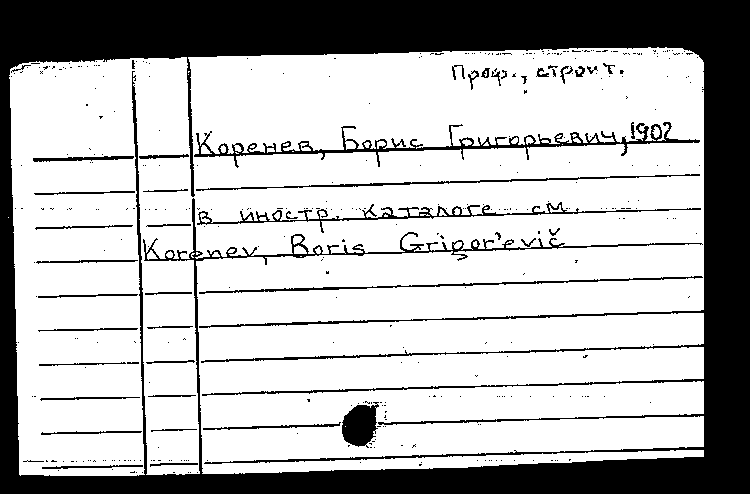 Проф., строит.
Коренев, Борис Григорьевич, 1902
в иностр. каталоге см.
Korenev, Boris Grigor'evič